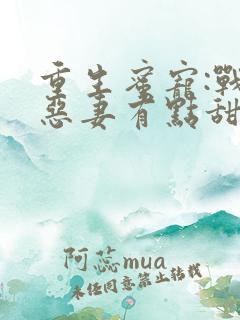 重生蜜寵:戰
惡妻有點甜
阿蕊mua
未经同意禁止转载